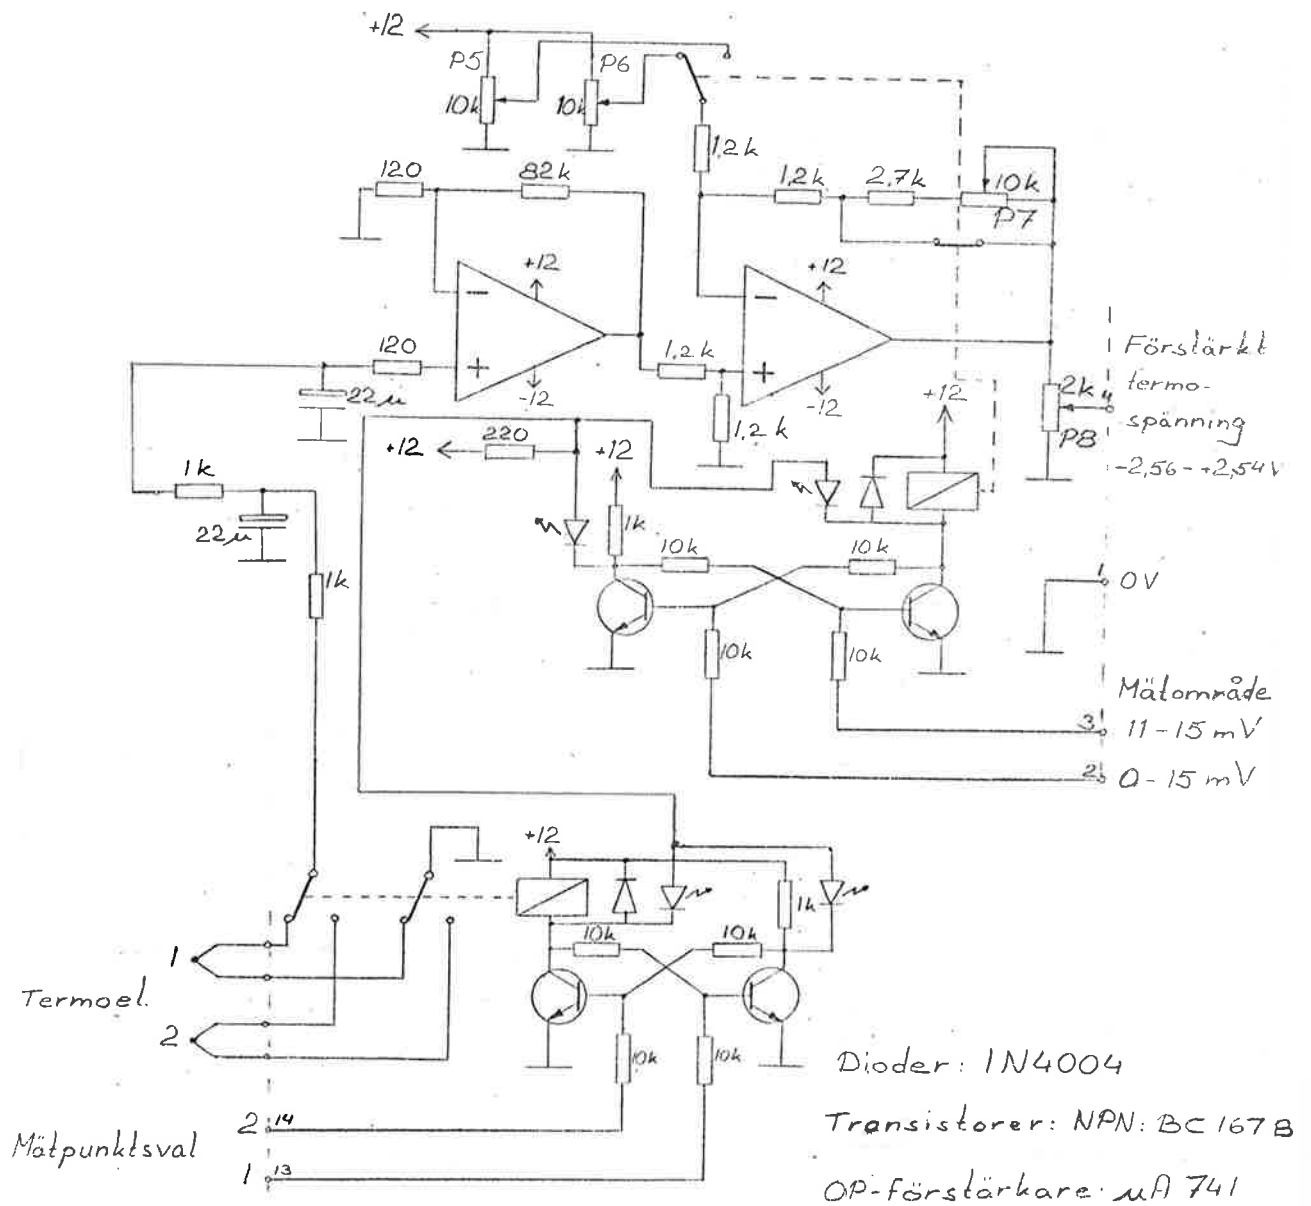 +12
P5
P6
10k
10k
1,2k
120
82k
1,2k
2,7k
10k
P7
+12
+12
-
-
120
+
1,2k
+
22µ
-12
-12
+12
1,2k
2k
4
P8
Förstärkt
termo-
spänning
-2,56 - +2,54V
+12
220
+12
1k
22µ
1k
10k
10k
1k
10k
10k
1
0V
Mätområde
3
11-15 mV
2
0-15 mV
+12
1k
10k
10k
1
Termoel.
2
10k
10k
Mätpunktsval
2 14
1 13
Dioder: 1N4004
Transistorer: NPN: BC 167 B
OP-förstärkare: µA 741